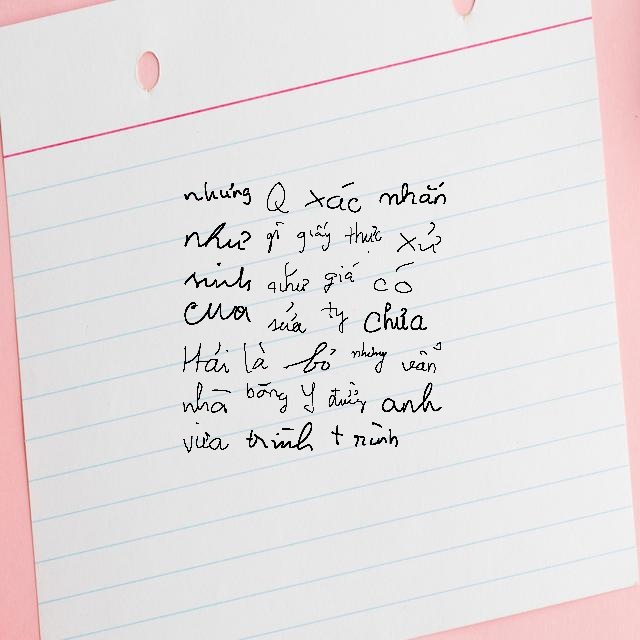 những Q xác nhấn
như gì giấy thực xử
sinh như giá có
cua sứa ty chưa
Hái là bỏ những vẫn
nhà bằng Y được anh
vừa trình t rình